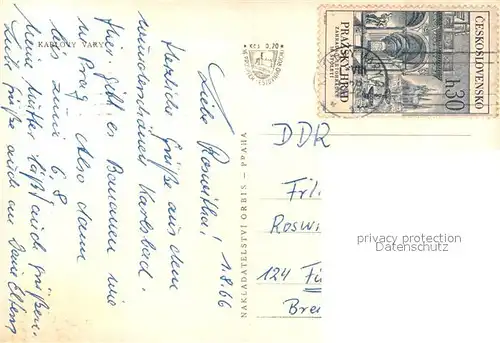 KARLOVY VARY
Kčs 0,70
1.8.66
Liebe Roswitha!
Herzliche Grüße aus dem
wunderschönen Karlsbad.
Hier gibt es Bananen wie
in Prag. Also dann
bis zum 6.8.
Meine Mutter läßt auch grüßen.
Liebe Grüße auch an Deine Eltern
NAKLADATELSTVÍ ORBIS - PRAHA
ČESKOSLOVENSKO
PRAŽSKÝ HRAD
30 h
DDR
Frl.
Rosw
124 Fü
Bre
privacy protection
Datenschutz